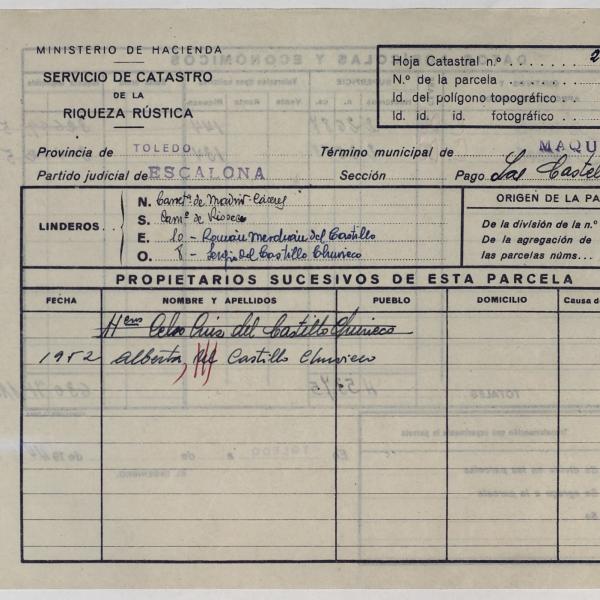 MINISTERIO DE HACIENDA
SERVICIO DE CATASTRO
DE LA
RIQUEZA RÚSTICA
Hoja Catastral n.º . . . . . . . 2
N.º de la parcela . . . . . . .
Id. del polígono topográfico
Id. id. id. fotográfico
Provincia de TOLEDO
Término municipal de MAQU
Partido judicial de ESCALONA
Sección
Pago Los Castel
LINDEROS . .
N. Carretª de Madrid-Cáceres
S. Camº de
E. 10 - Román del Castillo
O. 8 - Sergio del Castillo Chuvieco
ORIGEN DE LA PA
De la división de la n.º
De la agregación de
las parcelas núms. . .
PROPIETARIOS SUCESIVOS DE ESTA PARCELA
FECHA
NOMBRE Y APELLIDOS
PUEBLO
DOMICILIO
Causa d
Hnos del Castillo Chuvieco
1952 Alberto, del Castillo Chuvieco